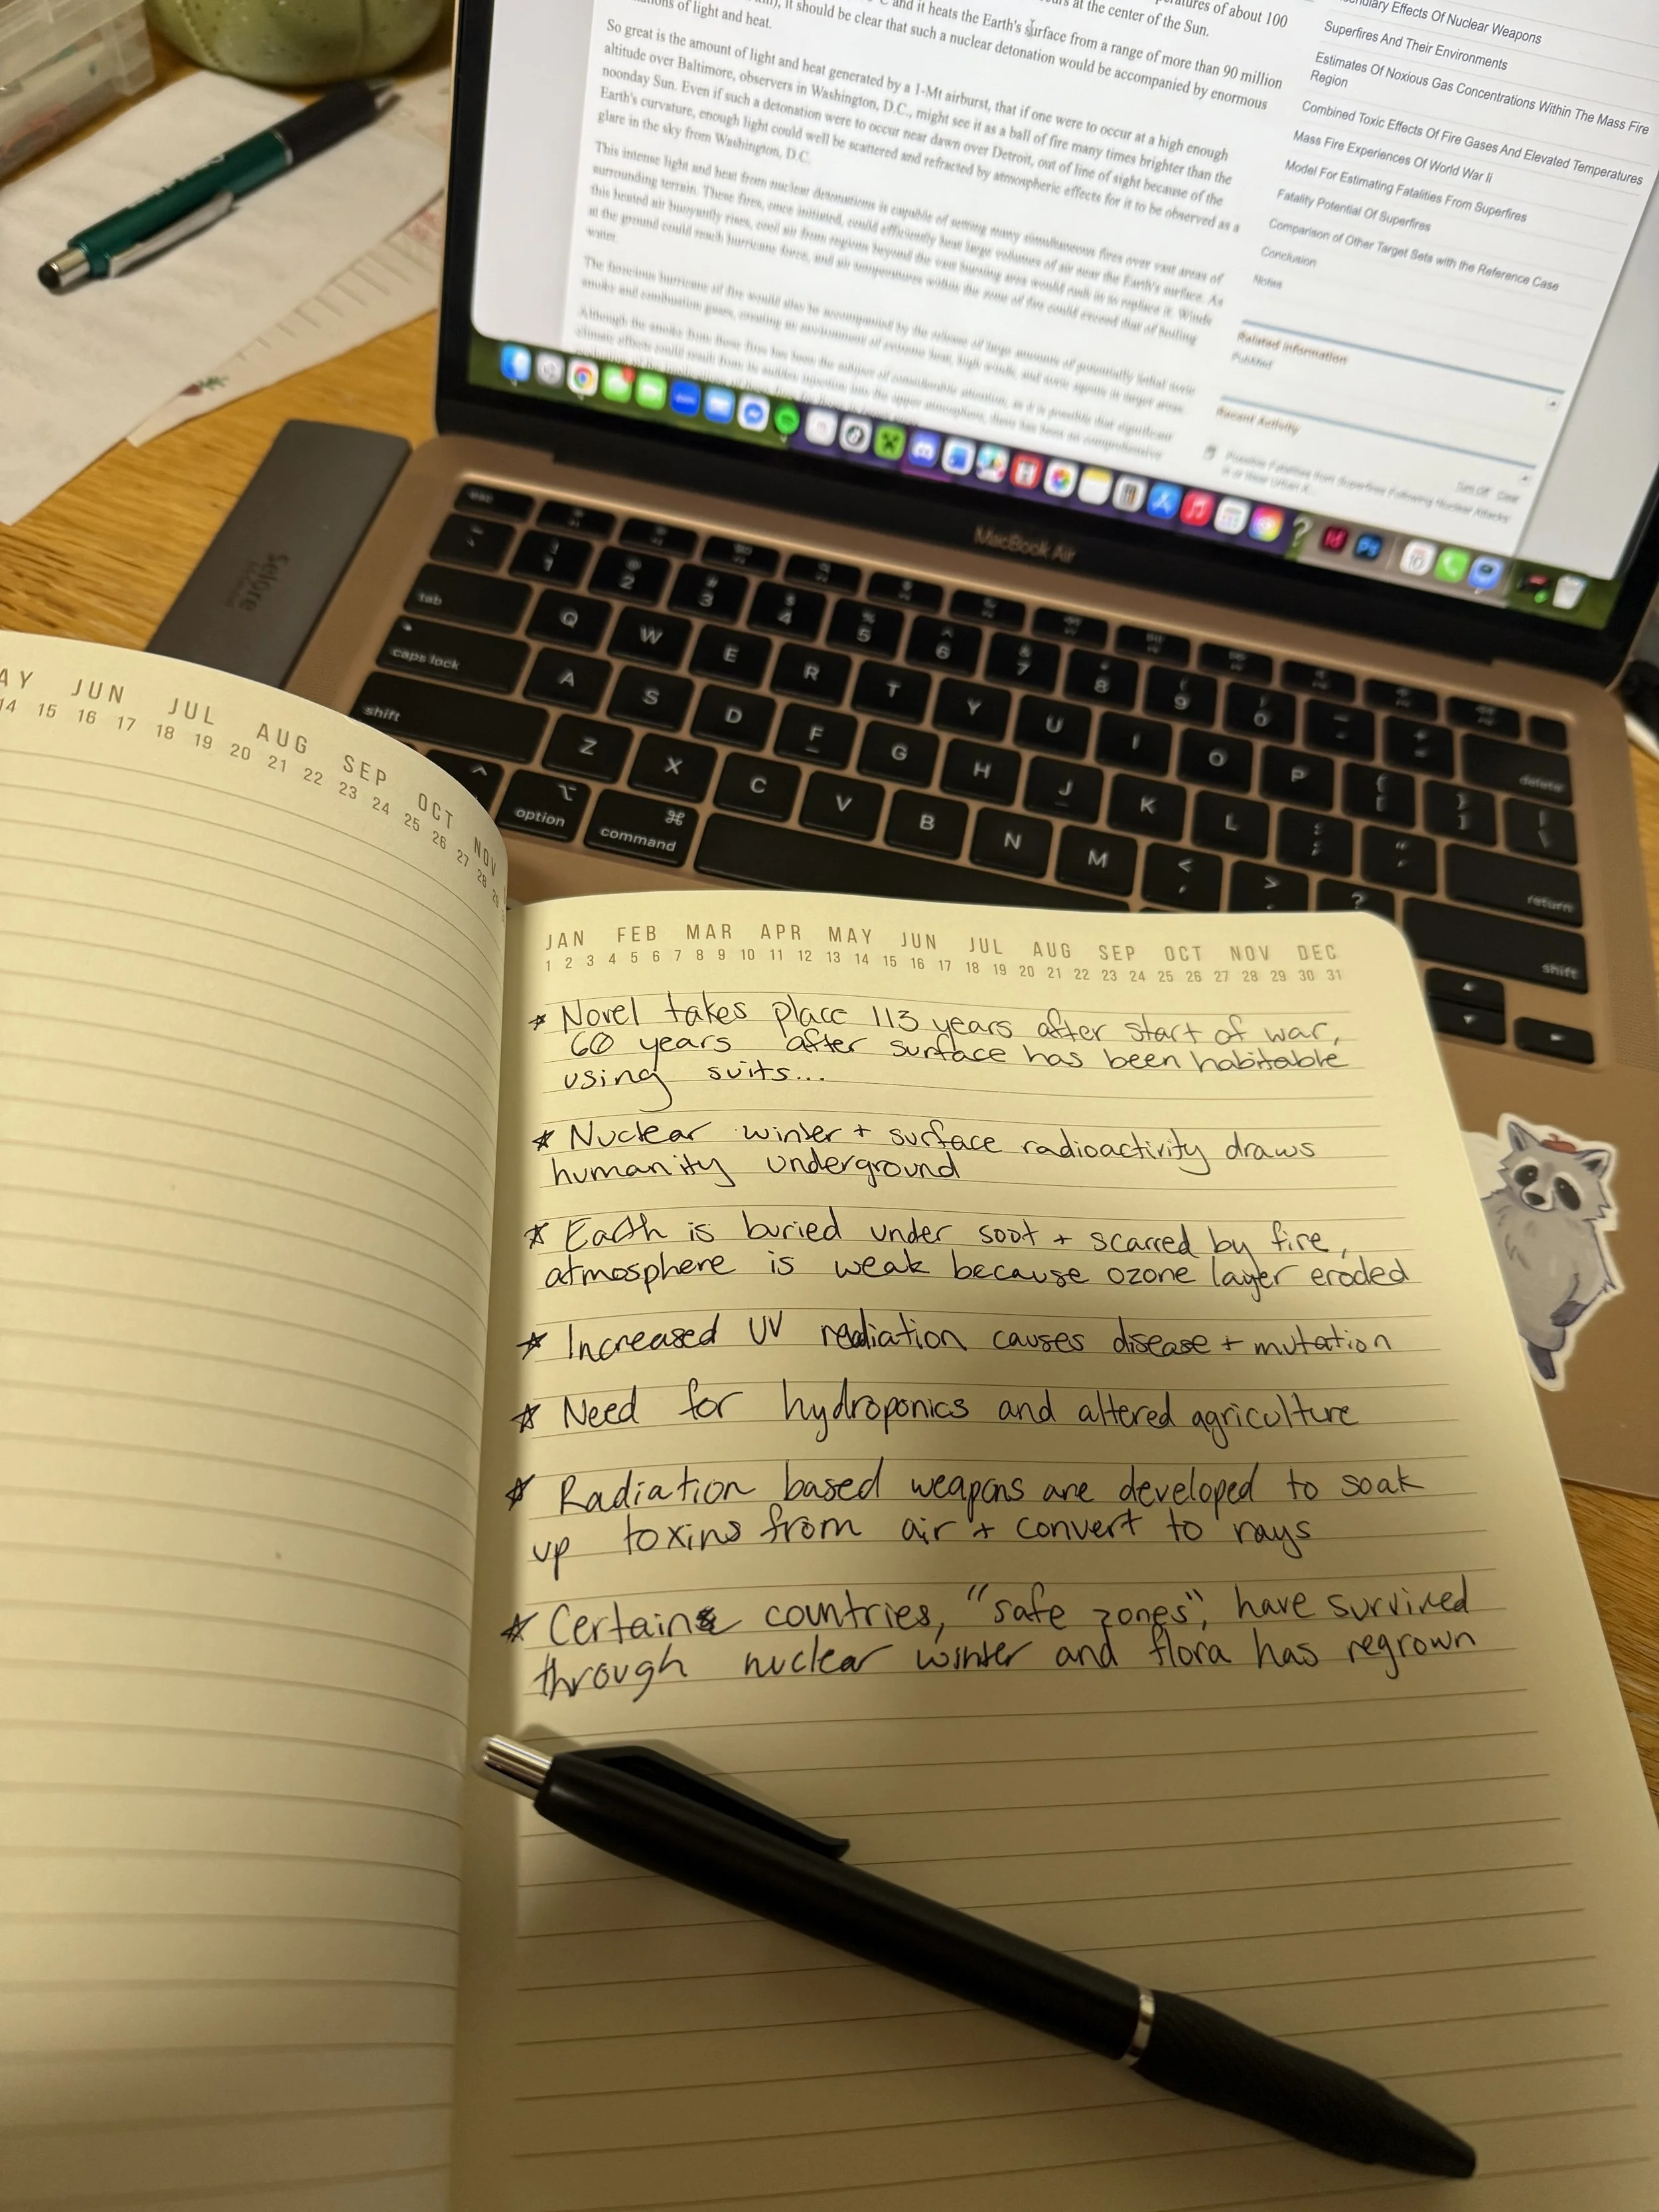 atures of about 100
urs at the center of the Sun.
°C and it heats the Earth's surface from a range of more than 90 million
it should be clear that such a nuclear detonation would be accompanied by enormous
of light and heat.
So great is the amount of light and heat generated by a 1-Mt airburst, that if one were to occur at a high enough
altitude over Baltimore, observers in Washington, D.C., might see it as a ball of fire many times brighter than the
noonday Sun. Even if such a detonation were to occur near dawn over Detroit, out of line of sight because of the
Earth's curvature, enough light could well be scattered and refracted by atmospheric effects for it to be observed as a
glare in the sky from Washington, D.C.
This intense light and heat from nuclear detonations is capable of setting many simultaneous fires over vast areas of
surrounding terrain. These fires, once initiated, could efficiently heat large volumes of air near the Earth's surface. As
this heated air buoyantly rises, cool air from regions beyond the vast burning area would rush in to replace it. Winds
at the ground could reach hurricane force, and air temperatures within the zone of fire could exceed that of boiling
water.
The ferocious hurricane of fire would also be accompanied by the release of large amounts of potentially lethal toxic
smoke and combustion gases, creating an environment of extreme heat, high winds, and toxic agents in target areas.
Although the smoke from these fires has been the subject of considerable attention, as it is possible that significant
climate effects could result from its sudden injection into the upper atmosphere, there has been no comprehensive
Effects Of Nuclear Weapons
Superfires And Their Environments
Estimates Of Noxious Gas Concentrations Within The Mass Fire
Region
Combined Toxic Effects Of Fire Gases And Elevated Temperatures
Mass Fire Experiences Of World War Ii
Model For Estimating Fatalities From Superfires
Fatality Potential Of Superfires
Comparison of Other Target Sets with the Reference Case
Conclusion
Notes
Related information
PubMed
Recent Activity
Turn Off Clear
Possible Fatalities from Superfires Following Nuclear Attacks
in or Near Urban A...
MacBook Air
Selore
esc
1 2 3 4 5 6 7 8 9 0
delete
tab Q W E R T Y U I O P
caps lock A S D F G H J K L
return
shift Z X C V B N M < , > ?
shift
option command
AY JUN JUL AUG SEP OCT NOV
14 15 16 17 18 19 20 21 22 23 24 25 26 27 28 29
JAN FEB MAR APR MAY JUN JUL AUG SEP OCT NOV DEC
1 2 3 4 5 6 7 8 9 10 11 12 13 14 15 16 17 18 19 20 21 22 23 24 25 26 27 28 29 30 31
* Novel takes place 113 years after start of war,
60 years after surface has been habitable
using suits...
* Nuclear winter + surface radioactivity draws
humanity underground
* Earth is buried under soot + scarred by fire,
atmosphere is weak because ozone layer eroded
* Increased UV radiation causes disease + mutation
* Need for hydroponics and altered agriculture
* Radiation based weapons are developed to soak
up toxins from air + convert to rays
* Certain countries, "safe zones", have survived
through nuclear winter and flora has regrown